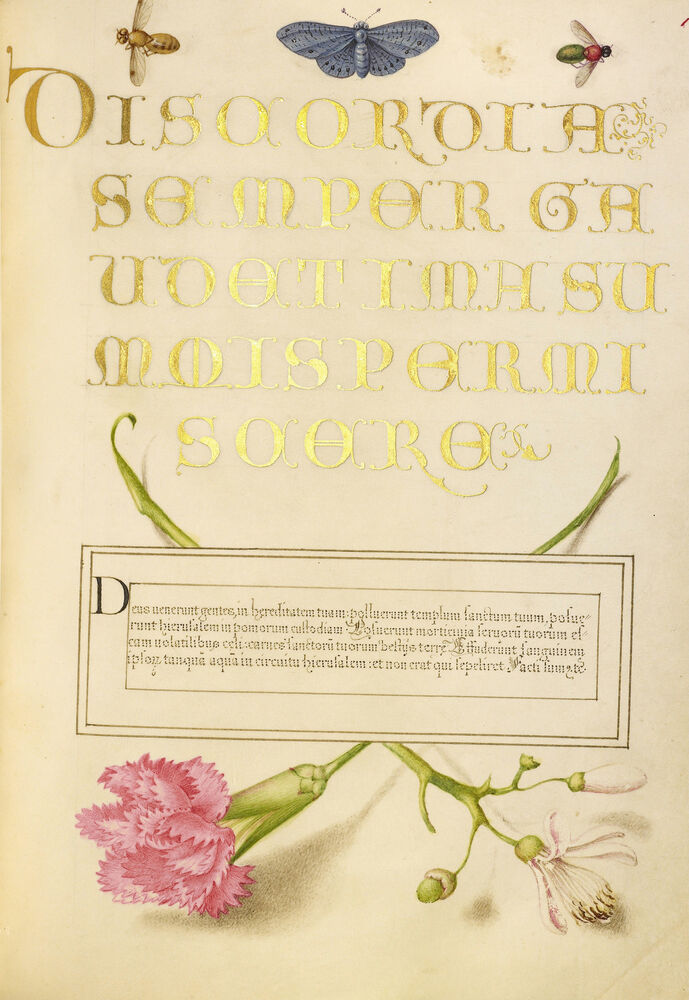 DISCORDIA
SEMPER GA
UDET IMA SU
MMIS PERMI
SCERE
Deus uenerunt gentes, in hereditatem tuam: polluerunt templum sanctum tuum, posue-
runt hierusalem in pomorum custodiam Posuerunt morticinia seruorũ tuorum es-
cam uolatilibus celi: carnes sanctorũ tuorum bestijs terrę Effuderunt sanguinem
ipsoꝝ tanquã aquã in circuitu hierusalem: et non erat qui sepeliret Facti